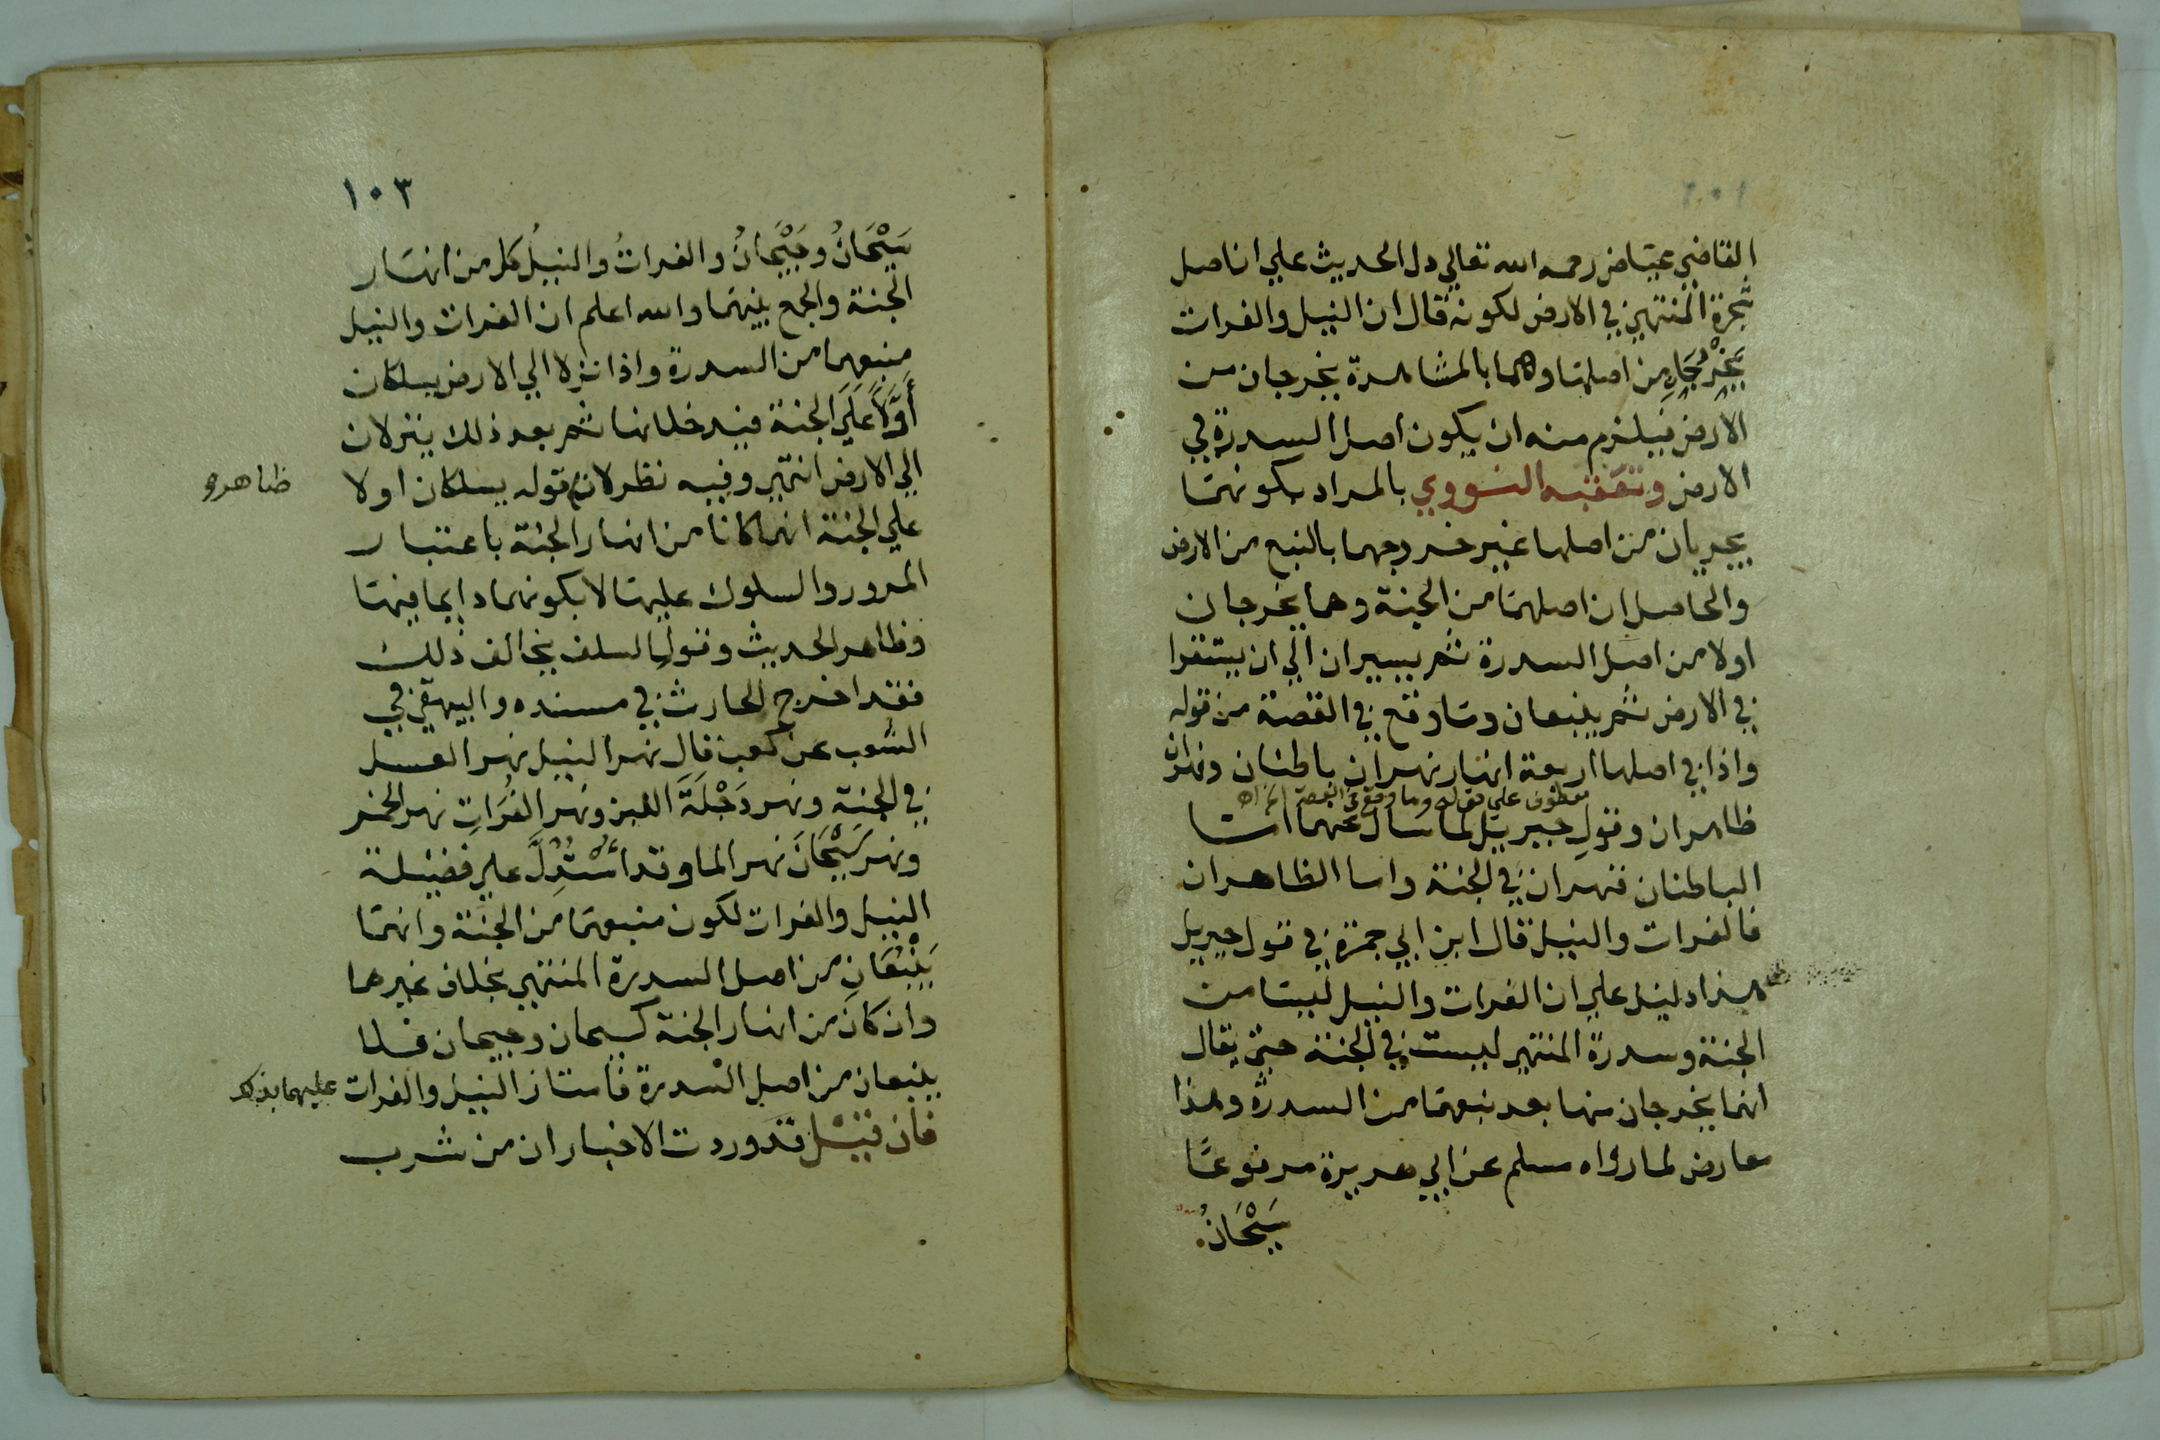 القاضي عياض رحمه الله تعالي دل الحديث علي ان اصل
شجرة المنتهي في الارض لكونه قال ان النيل والفرات
يخرجان من اصلها وهما بالمشاهدة يخرجان من
الارض فيلزم منه ان يكون اصل السدرة في
الارض وتعقبه النووي بالمراد بكونهما
يجريان من اصلها غير خروجهما بالنبع من الارض
والحاصل ان اصلهما من الجنة وهما يخرجان
اولا من اصل السدرة ثم يسيران الي ان يستقرا
في الارض ثم ينبعان وما وقع في القصة من قوله
واذا في اصلها اربعة انهار نهران باطنان ونهران
معطوف علي قوله وما وقع في القصة الخ اه
ظاهران وقول جبريل لما سال عنهما اما
الباطنان فنهران في الجنة واما الظاهران
فالفرات والنيل قال ابن ابي جمرة في قول جبريل
هذا دليل علي ان الفرات والنيل ليسا من
الجنة وسدرة المنتهي ليست في الجنة حتي يقال
انهما يخرجان منها بعد نبعهما من السدرة وهذا
معارض لما رواه مسلم عن ابي هريرة مرفوعًا
سَيْحَانُ
١٠٣
سَيْحَانُ وجَيْحَانُ والفراتُ والنيلُ كل من انهار
الجنة والجمع بينهما والله اعلم ان الفرات والنيل
منبعهما من السدرة واذا نزلا الي الارض يسلكان
أَوَّلًا عَلَي الجنة فيدخلانها ثم بعد ذلك ينزلان
الي الارض انتهي وفيه نظر لان قوله يسلكان اولا
ظاهره
علي الجنة انهما كانا من انهار الجنة باعتبار
المرور والسلوك عليها لا بكونهما دايما فيها
وظاهر الحديث وقول السلف يخالف ذلك
فقد اخرج الحارث في مسنده والبيهقي في
الشعب عن كعب قال نهر النيل نهر العسل
في الجنة ونهر دَجْلَةَ اللبن ونهر الفُرَاتِ نهر الخمر
ونهر سَيْحَانَ نهر الما وقد أسْتُدِلَّ علي فضيلة
النيل والفرات لكون منبعهما من الجنة وانهما
يَنْبُعَانِ من اصل السدرة المنتهي بخلاف غيرهما
وان كان من انهار الجنة كسيحان وجيحان فلا
ينبعان من اصل السدرة فامتاز النيل والفرات عليهما بذلك
فان قيل قد وردت الاخبار ان من شرب